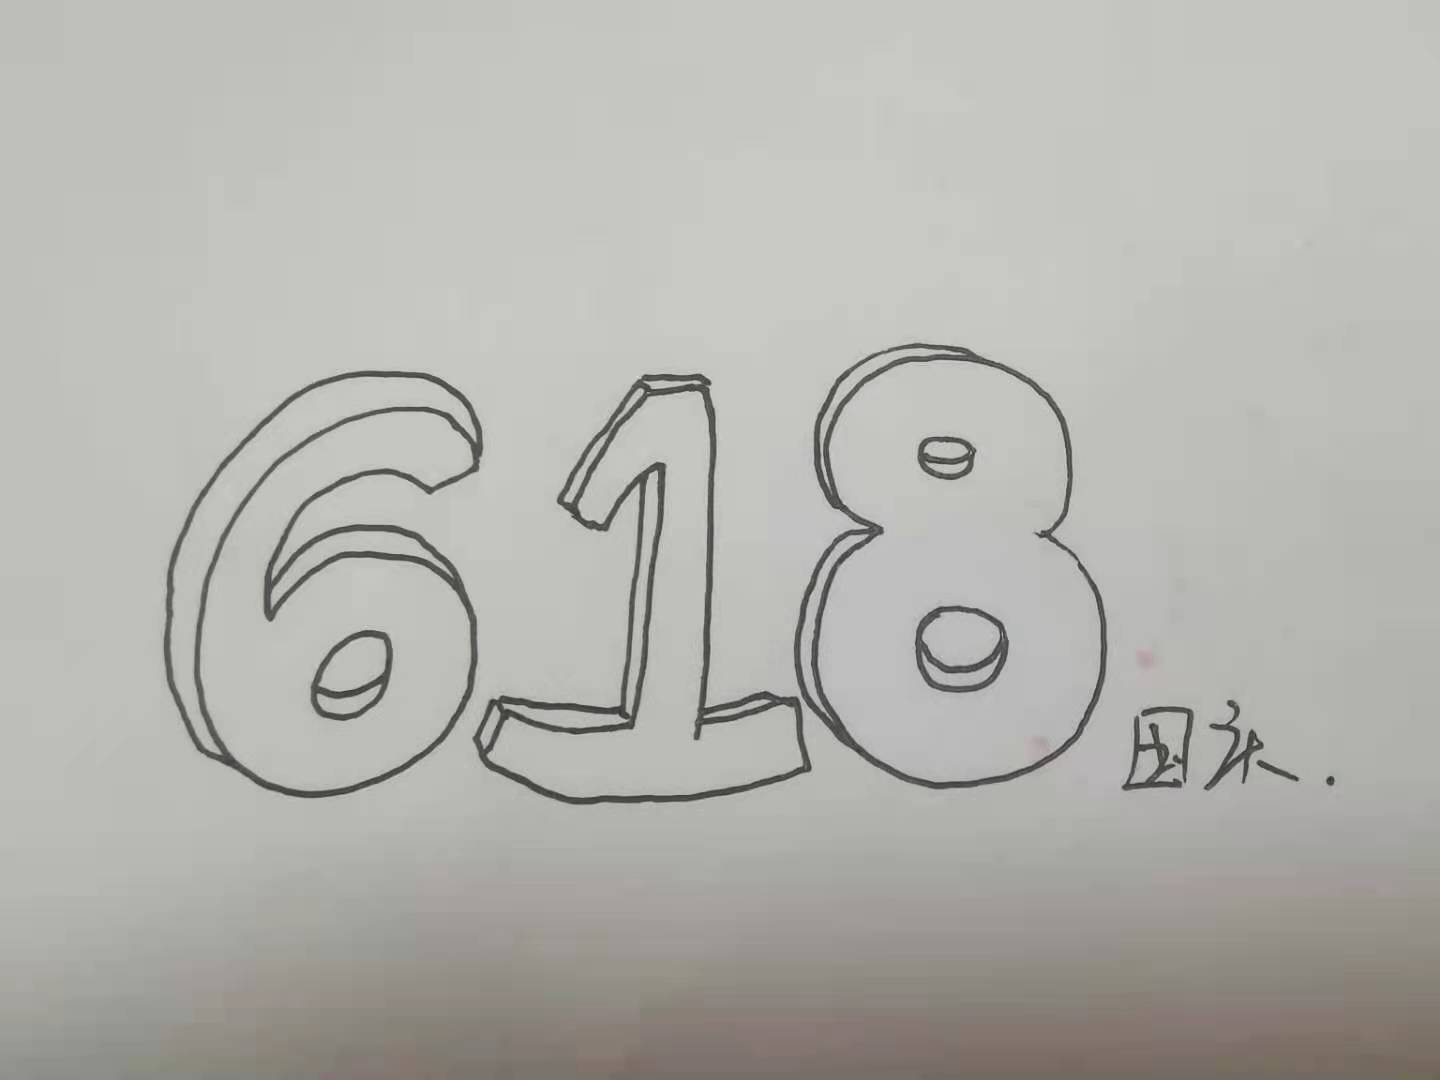 618 国庆.